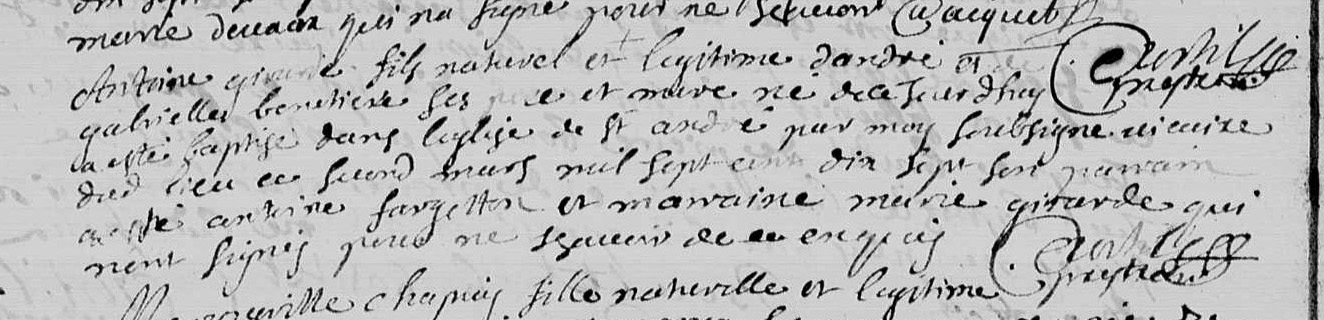 marie deuaux qui na signe pour ne scauoir Jacquet
Antoine girarde fils naturel et legitime dandré et de
gabrielle benetiere ses pere et mere ne decejourdhuy
a esté baptisé dans leglise de st andré par moy soubsigne uicaire
dud lieu ce second mars mil sept cent dix sept son parrain
a esté antoine fargetton et marraine marie girarde qui
nont signés pour ne scauoir de ce enquis
chapuis fille naturelle et legitime